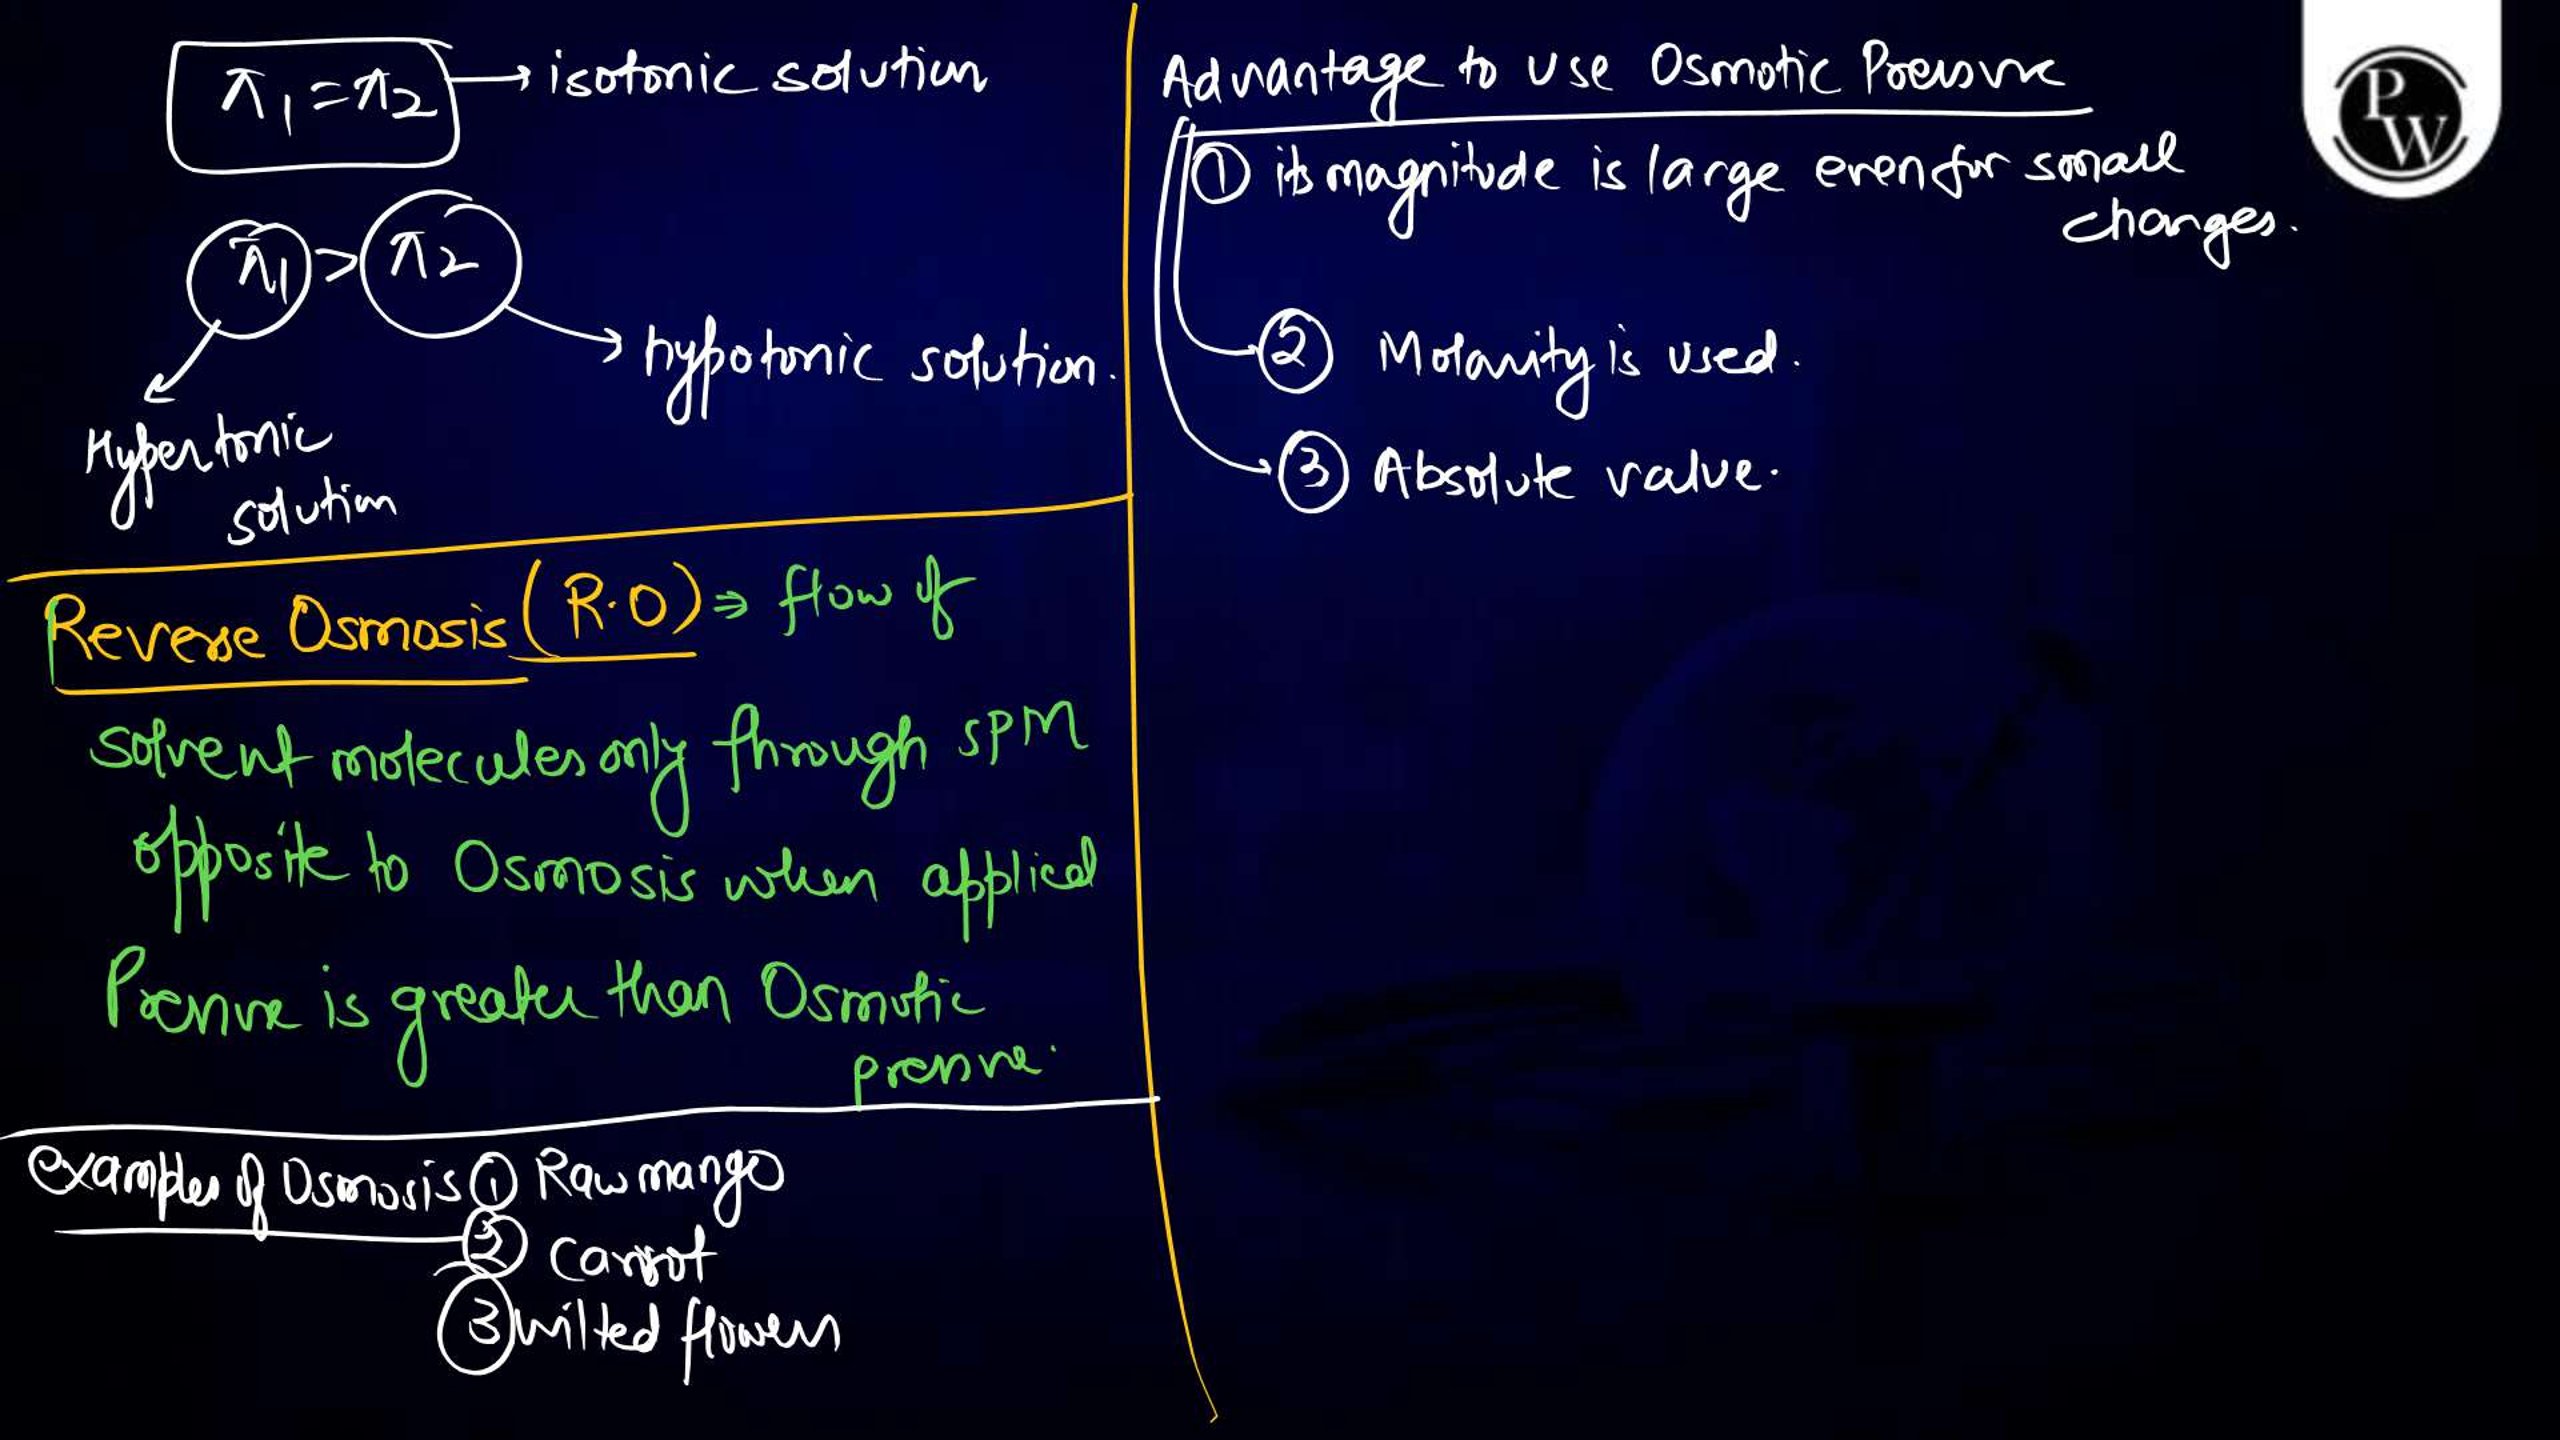 π1 = π2 → isotonic solution
π1 > π2
→ hypotonic solution.
Hypertonic
solution
Reverse Osmosis (R.O) ⇒ flow of
solvent molecules only through SPM
opposite to Osmosis when applied
Pressure is greater than Osmotic
pressure.
examples of Osmosis ① Raw mango
② Carrot
③ wilted flowers
Advantage to use Osmotic Pressure
① its magnitude is large even for small
changes.
② Molarity is used.
③ Absolute value.
PW